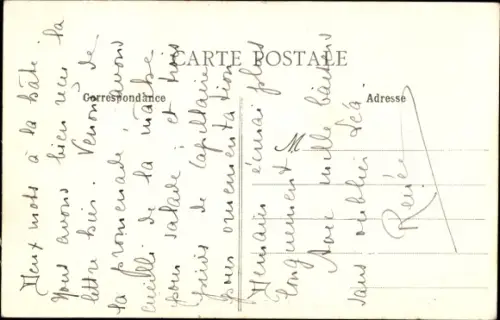 CARTE POSTALE
Correspondance
Adresse
M
Deux mots à la hâte !
Nous avons bien reçu ta
lettre hier. Venons de
la promenade, avons
cueilli de la mâche
pour salade ; et trois
brins de capillaire
pour ornementation
Demain écrirai plus
longuement
Avec mille baisers
sans oublier Léa
Renée